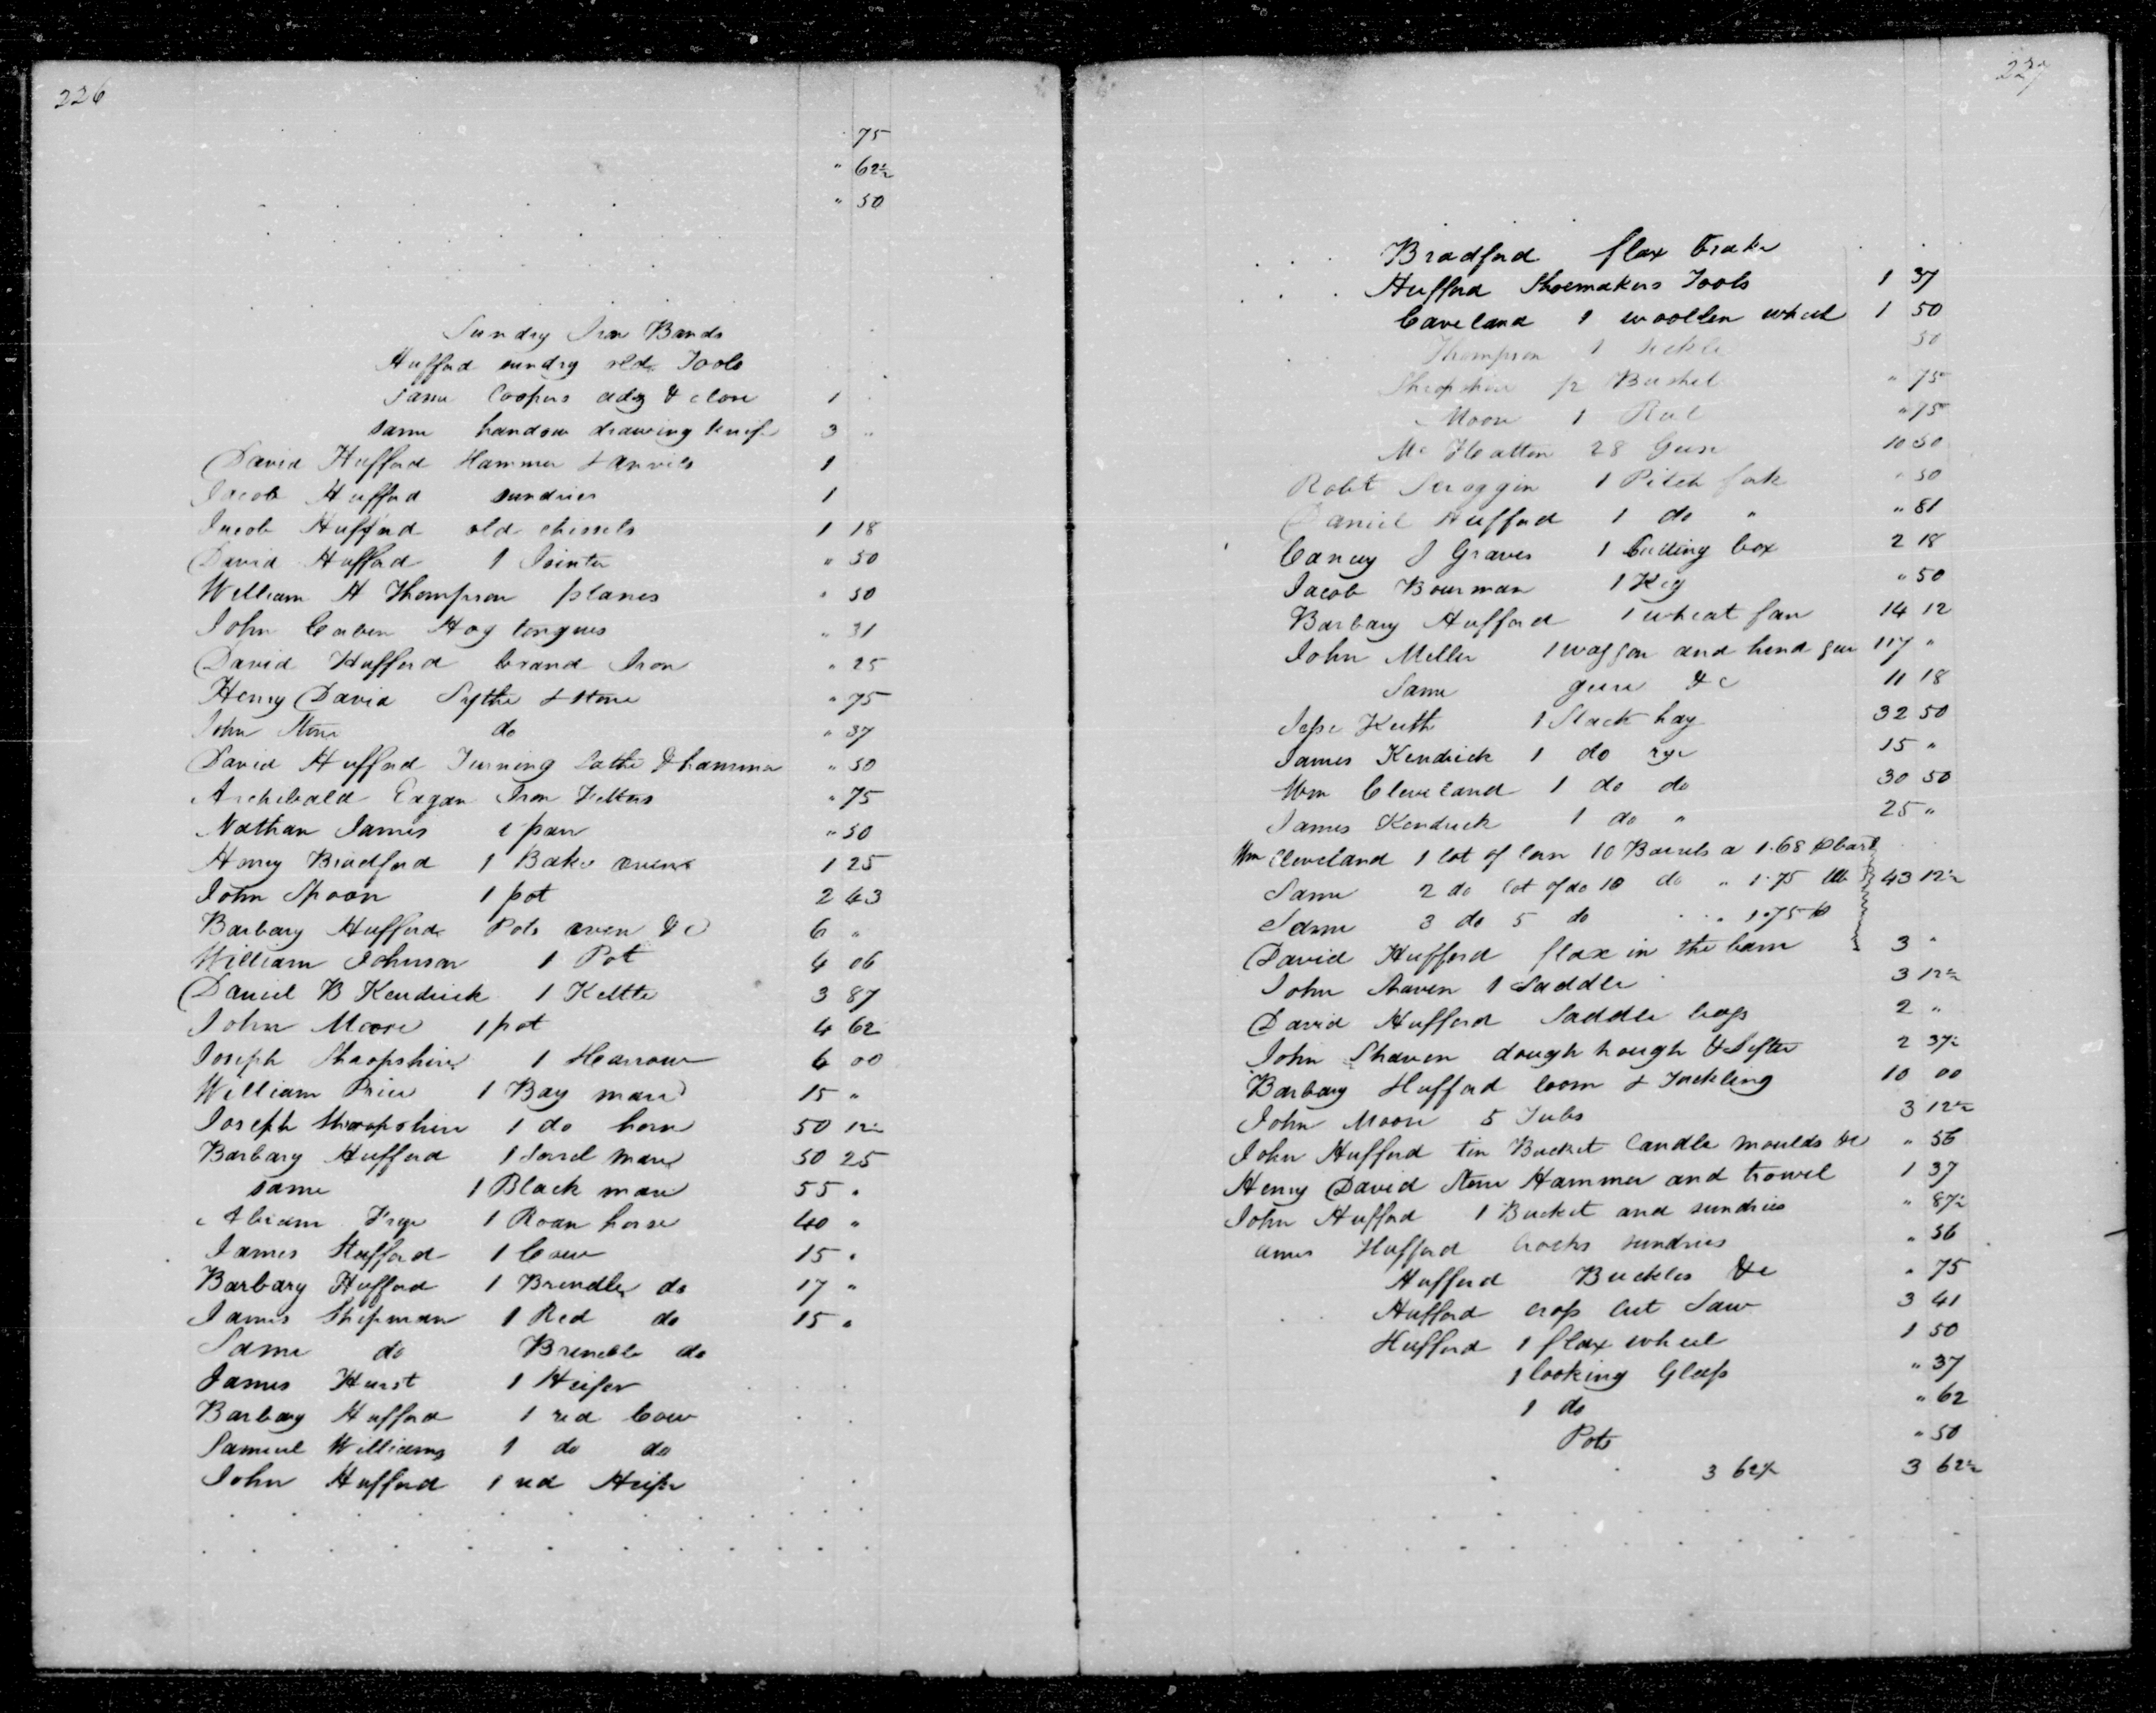 226
75
" 62½
" 50
Sundry Iron Bands
Hufford sundry old Tools
same Coopers adz & 1
same handsaw drawing knife 3 "
David Hufford Hammer & anvils 1
Jacob Hufford sundries 1
Jacob Hufford old chissels 1 18
David Hufford 1 Jointer " 50
William H Thompson planes " 50
John Hog tongues " 31
David Hufford brand Iron " 25
Henry David Sythe & stone " 75
John Stone do " 37
David Hufford Turning Lathe & hammer " 50
Archibald Eagan Iron " 75
Nathan James 1 pan " 50
Henry Bradford 1 Bake oven 1 25
John Spoon 1 pot 2 43
Barbary Hufford Pots oven &c 6 "
William Johnson 1 Pot 4 06
Daniel B Kendrick 1 Kettle 3 87
John Moore 1 pot 4 62
Joseph Shropshire 1 Harrow 6 00
William Price 1 Bay mare 15 "
Joseph Shropshire 1 do horse 50 12½
Barbary Hufford 1 Sorrel mare 50 25
same 1 Black mare 55 "
Abram Frye 1 Roan horse 40 "
James Hufford 1 Cow 15 "
Barbary Hufford 1 Brindle do 17 "
James Shipman 1 Red do 15 "
Same do Brindle do
James Hurst 1 Heifer
Barbary Hufford 1 red Cow
Samuel Williams 1 do do
John Hufford 1 red Heifer
227
Bradford flax brake
Hufford Shoemakers Tools 1 37
Caveland 1 woollen wheel 1 50
Thompson 1 Sickle 50
Shropshire ½ Bushel " 75
Moore 1 Reel " 75
Mc Hatton 28 Geese 10 50
Robt Scroggin 1 Pitch fork " 50
Daniel Hufford 1 do " " 81
J Graves 1 Cutting box 2 18
Jacob Bowman 1 Keg " 50
Barbary Hufford 1 wheat fan 14 12
John Miller 1 waggon and hind gear 117 "
Same geere &c 11 18
Jesse Keith 1 Stack hay 32 50
James Kendrick 1 do rye 15 "
Wm Cleveland 1 do do 30 50
James Kendrick 1 do " 25 "
Wm Cleveland 1 lot of Corn 10 Barrels a 1.68 barl
Same 2 do lot of do 10 do " 1.75 43 12½
Same 3 do 5 do " 1.75
David Hufford flax in the barn 3 "
John Shaven 1 Saddle 3 12½
David Hufford Saddle bags 2 "
John Shaven dough hough & Sifter 2 37½
Barbary Hufford loom & Tackling 10 00
John Moore 5 Tubs 3 12½
John Hufford tin Bucket Candle moulds &c " 56
Henry David Stone Hammer and trowel 1 37
John Hufford 1 Bucket and sundries " 87½
ames Hufford Crocks sundries " 56
Hufford Buckles &c " 75
Hufford cross cut Saw 3 41
Hufford 1 flax wheel 1 50
1 looking Glass " 37
1 do " 62
Pots " 50
3 62½ 3 62½